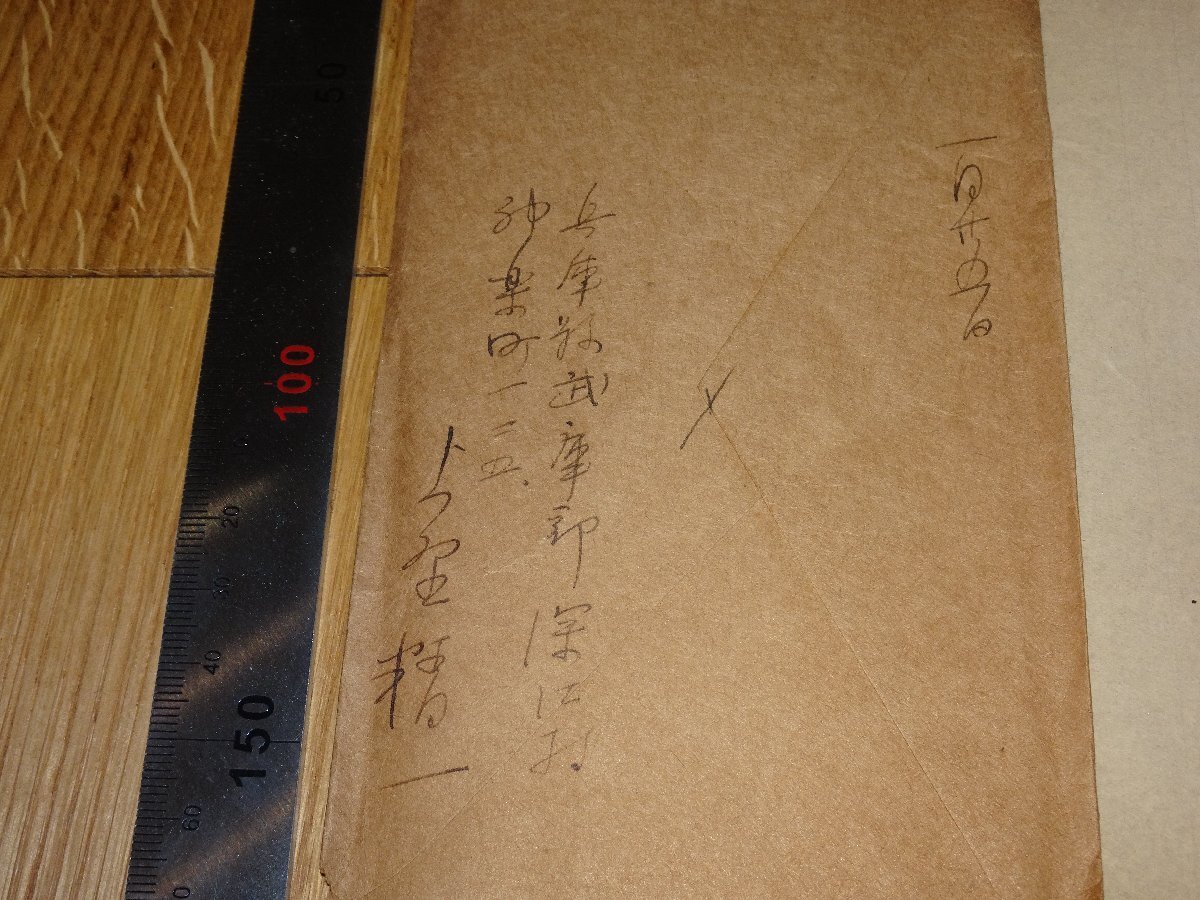 一月廿五日
兵庫縣武庫郡深江村
神楽町一三五、
上野精一
50
100
20
30
40
150
60